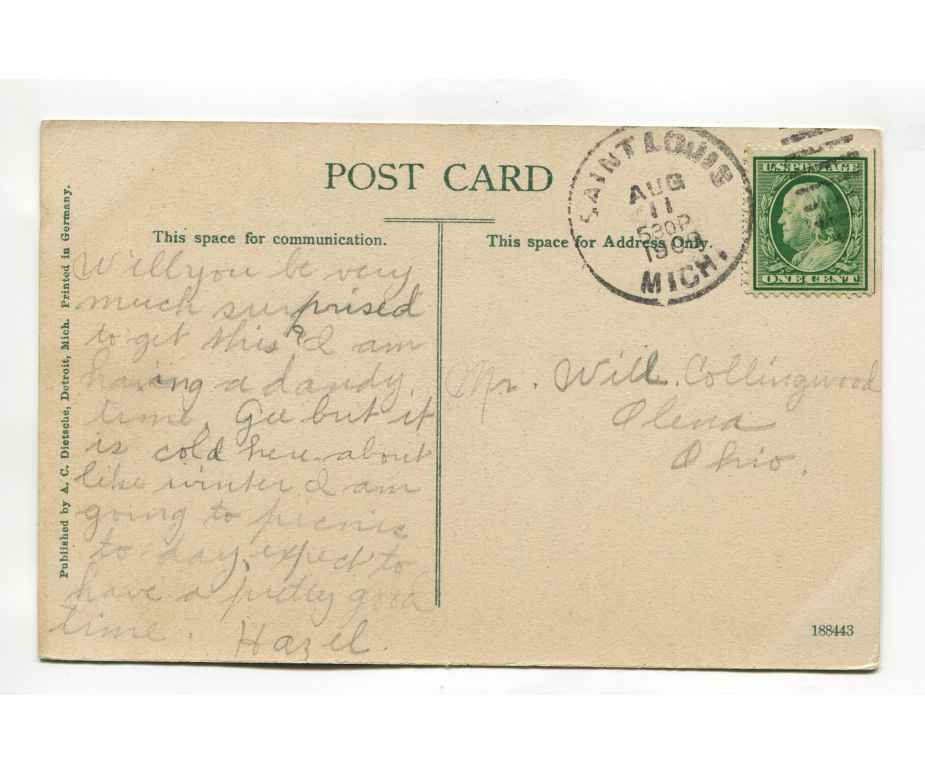 POST CARD
This space for communication.
This space for Address Only.
SAINT LOUIS
AUG
11
530P
1909
MICH.
U.S. POSTAGE
ONE CENT
Published by A. C. Dietsche, Detroit, Mich. Printed in Germany.
Will you be very
much surprised
to get this? I am
having a dandy
time. Gee but it
is cold here about
like winter I am
going to picnic
to day, expect to
have a pretty good
time. Hazel.
Mr. Will Collingwood
Olena
Ohio.
188443